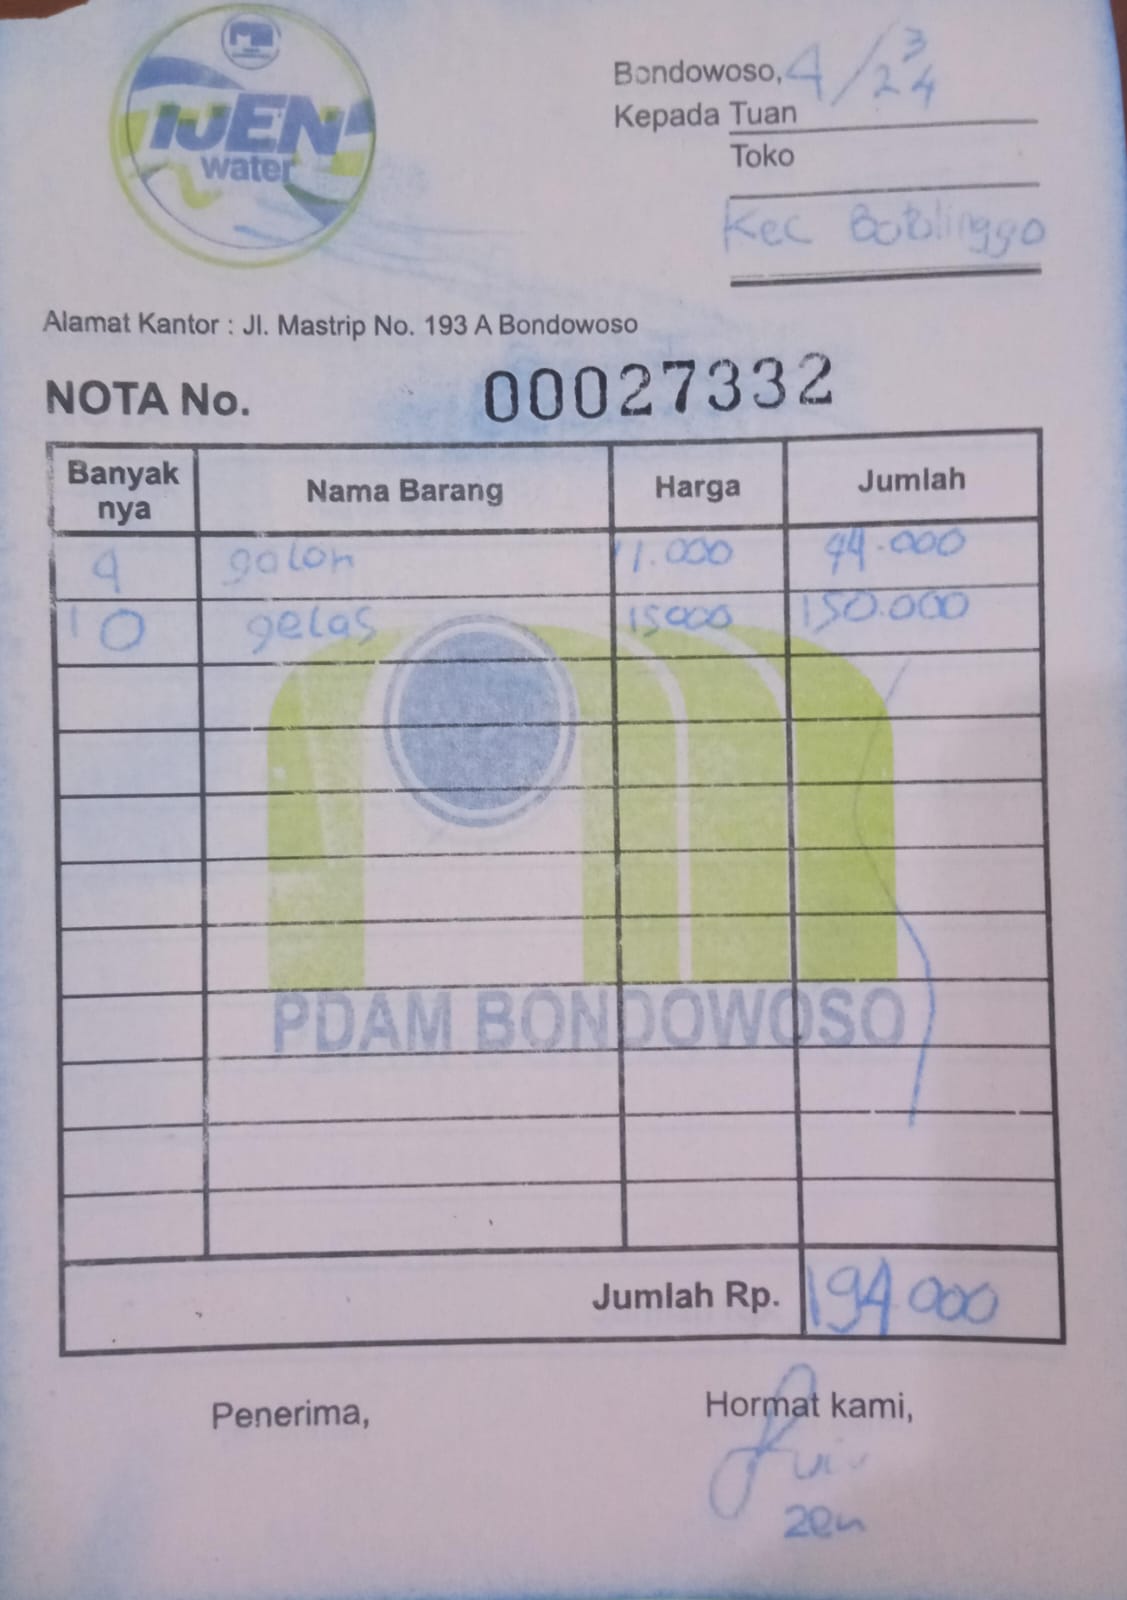 IJEN
water
Bondowoso, 4/3 24
Kepada Tuan
Toko
Kec Botolinggo
Alamat Kantor : Jl. Mastrip No. 193 A Bondowoso
NOTA No. 00027332
Banyak nya Nama Barang Harga Jumlah
4 galon 11.000 44.000
10 gelas 15000 150.000
PDAM BONDOWOSO
Jumlah Rp. 194.000
Penerima, Hormat kami,
zen